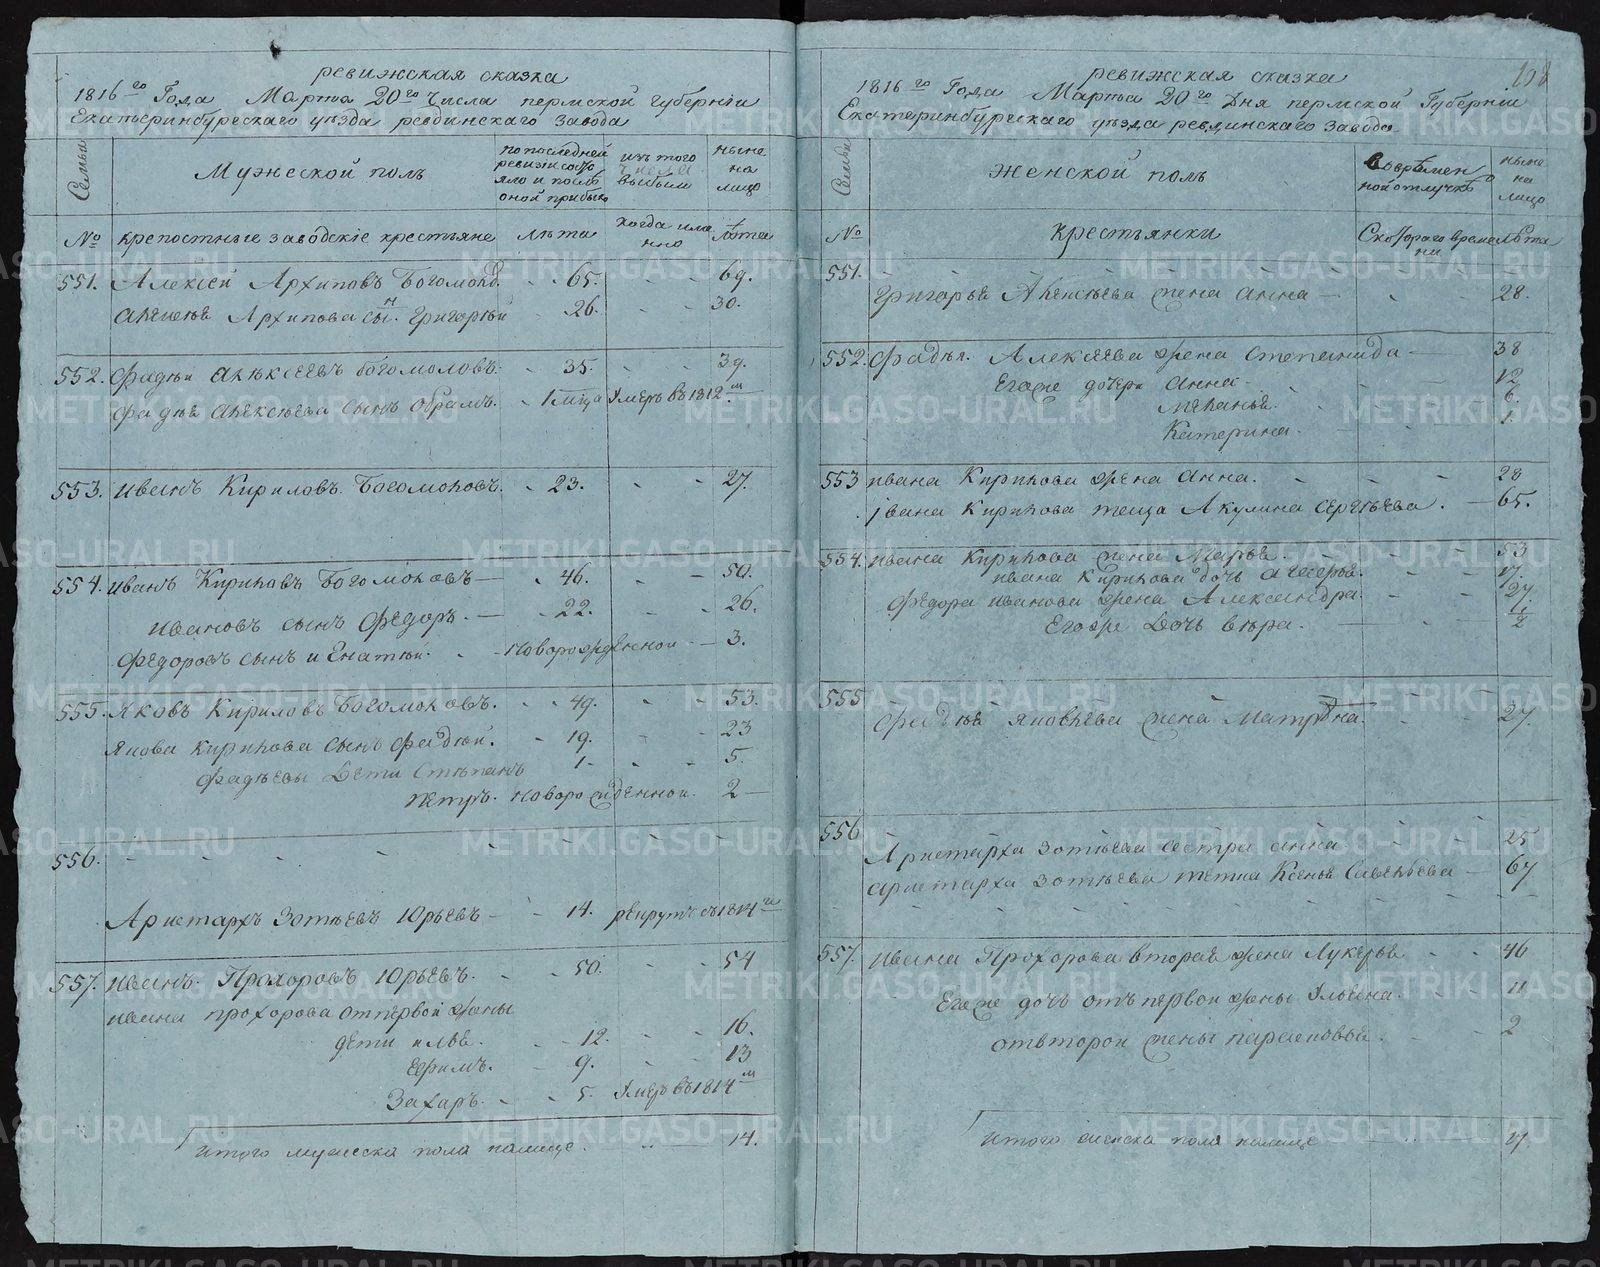 ревижская сказка
1816го Года Марта 20го Числа пермской губернїи
Екатьеринбурсскаго уѣзда ревдинскаго завода
Семьи
Мужеской полъ
по последней ревизїи состо яло и послѣ оной прибыло
изъ того числа выбыли
ныне на лицо
№ крепостные заводскїе крестьяне
лѣта
когда име нно
лѣта
551. Алексей Архиповъ Богомолов. 65. 69.
Алексея Архипова сын. Григорий 26. 30.
552. Фадѣи Алексеевъ богомоловъ. 35. 39.
Фадѣя Алексеева сынъ Обрамъ. 1 мѣца Умеръ въ 1812м
553. Иванъ Кириловъ Богомоловъ. 23. 27.
554. Иванъ Кириловъ Богомоловъ 46. 50.
Ивановъ сынъ Федоръ. 22. 26.
Федоровъ сынъ игнатеи. новорожденной 3.
555. Яковъ Кириловъ Богомоловъ. 49. 53.
Якова Кирилова сынъ Фадѣй. 19. 23
Фадѣевы Дети Степанъ 1. 5.
Петръ. новорожденной. 2
556.
Аристархъ Зотѣевъ Юрьевъ 14. рекрутъ съ 1814го
557. Иванъ Прохоровъ Юрьевъ. 50. 54
ивана прохорова отпервой жены
дети илья. 12. 16.
Ефимъ. 9. 13
Захаръ. 5. Умеръ въ 1814м
Итого мужеска пола налице. 14.
ревижская сказка
1816го Года Марта 20го Дня пермской Губернїи
Екатеринбургскаго уѣзда ревдинскаго завода
Семьи
Женской полъ
Вовремен ной отлучкѣ
ныне на лицо
№ Крестьянки
Скотораго време ни
лѣта
551. Григорья Алексѣева жена Анна 28.
552. Фадѣя. Алексеева жена степанида 38
Егоже дочери Анна 12
Меланья. 6.
Катерина. 1.
553 ивана Кирилова жена Анна. 28
івана Кирилова теща Акулина сергѣева. 65.
554. ивана Кирилова жена Марья. 53
ивана Кирилова дочь 17.
Федора иванова жена Александра. 27
Егоже Дочь вѣра. 1/2
555 Фадѣя яковлева жена Матрена. 27.
556 Аристарха Зотѣева сестра анна 25
аристарха Зотѣева тетка Ксенья Савельева 67
557. Ивана Прохорова вторая жена Лукерья 46
Егоже дочь отъ первой жены Ульяна. 11
отвторой жены парасковья. 2
Итого женска пола налице